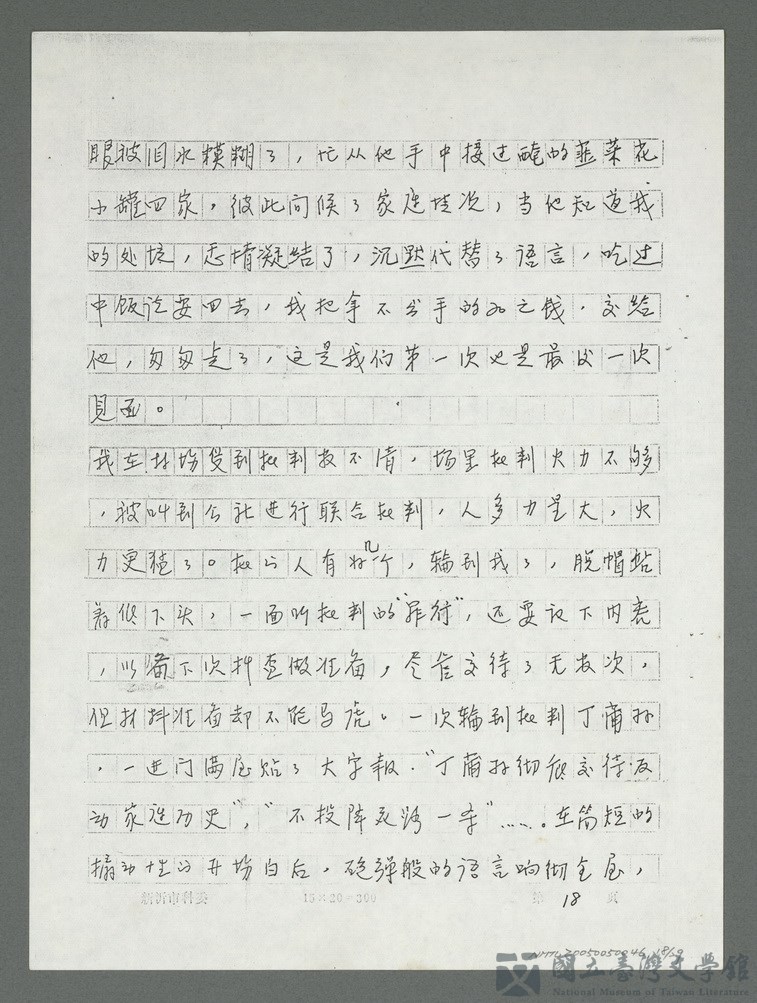 眼被泪水模糊了，忙从他手中接过腌的韮菜花
小罐回家，彼此问候了家庭情况，当他知道我
的处境，表情凝结了，沉默代替了语言，吃过
中饭说要回去，我把拿不出手的20元钱，交给
他，匆匆走了，这是我们第一次也是最后一次
见面。
我在林场受到批判数不清，场里批判火力不够
，被叫到公社进行联合批判，人多力量大，火
力更猛了。批的人有好几个，轮到我了，脱帽站
着低下头，一面听批判的“罪行”，还要记下内容
，以备下次抖查做准备，尽管交待了无数次，
但材料准备却不能马虎。一次轮到批判丁蒲孙
，一进门满屋贴了大字报．“丁蒲孙彻底交待反
动家庭历史”，“不投降死路一条”……。在简短的
搧动性的开场白后，砲弹般的语言响彻全屋，
15×20=300
第 18 页
NMTL20050050046 18/29
國立臺灣文學館
National Museum of Taiwan Literature